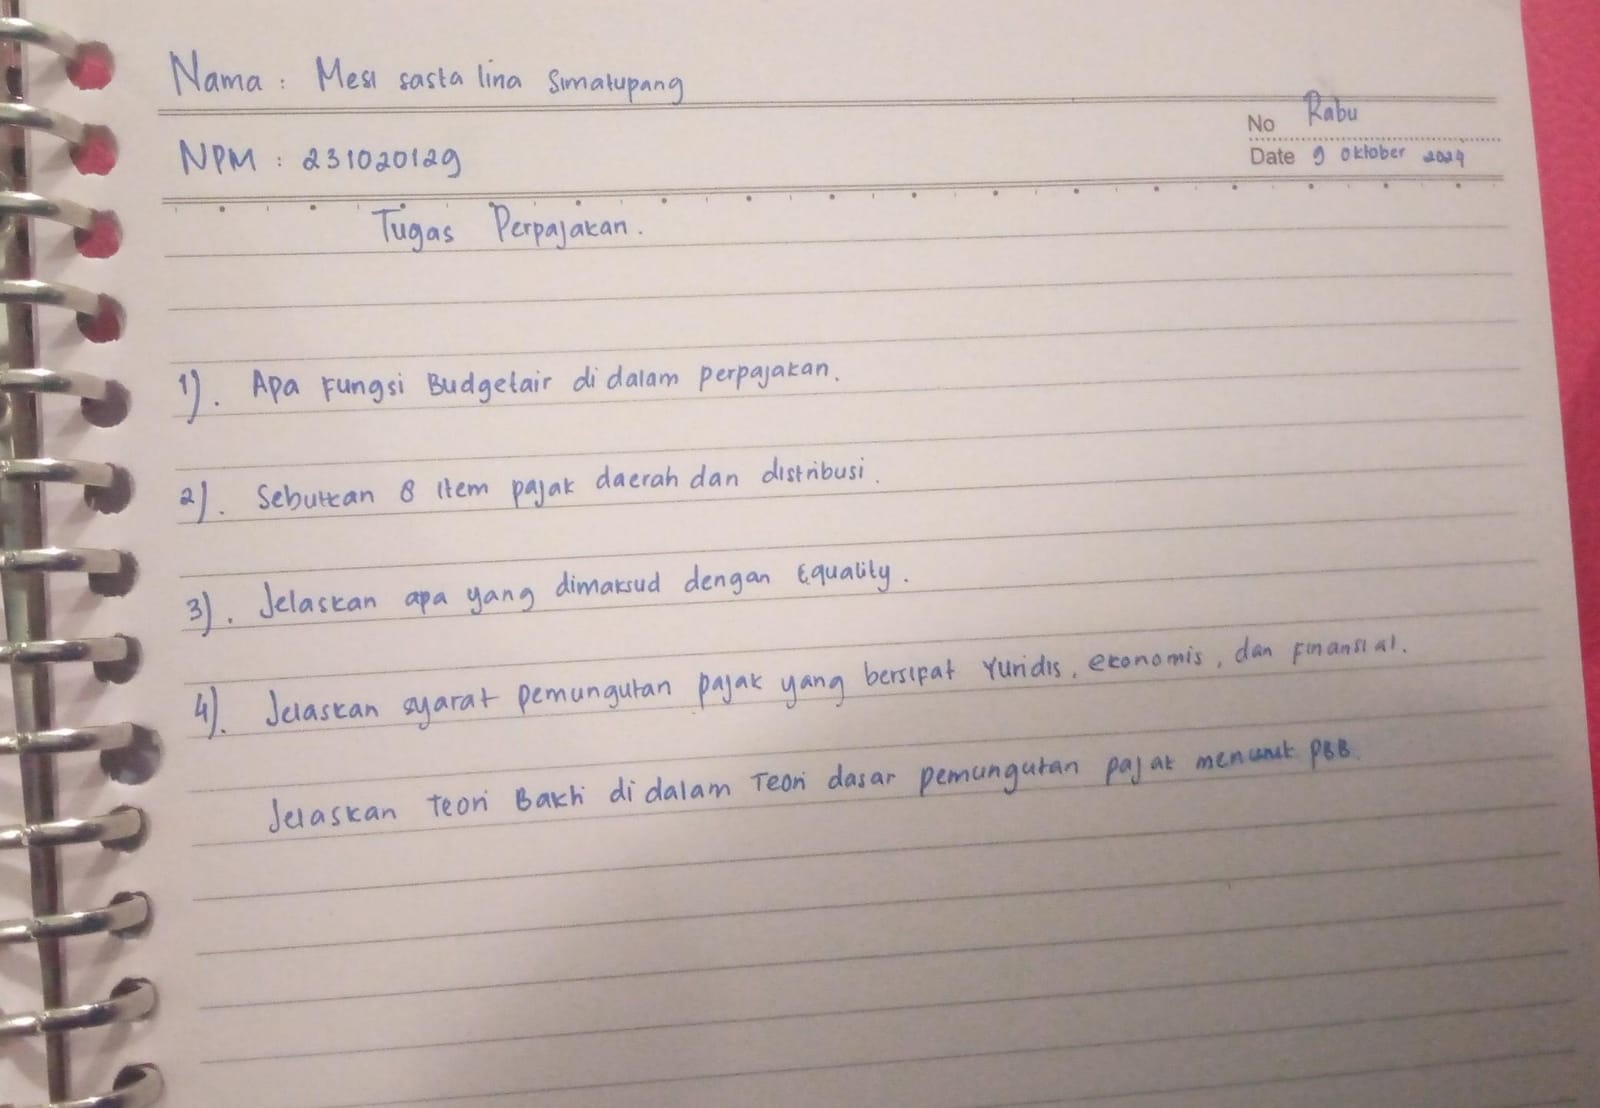 Nama : Mesi sasta lina Simatupang
No Rabu
NPM : 231020129
Date 9 Oktober 2024
Tugas Perpajakan.
1). Apa Fungsi Budgetair di dalam perpajakan.
2). Sebutkan 8 Item pajak daerah dan distribusi.
3). Jelaskan apa yang dimaksud dengan Equality.
4). Jelaskan syarat pemungutan pajak yang bersipat Yuridis, ekonomis, dan Finansial.
Jelaskan Teori Bakti di dalam Teori dasar pemungutan pajak menurut PBB.